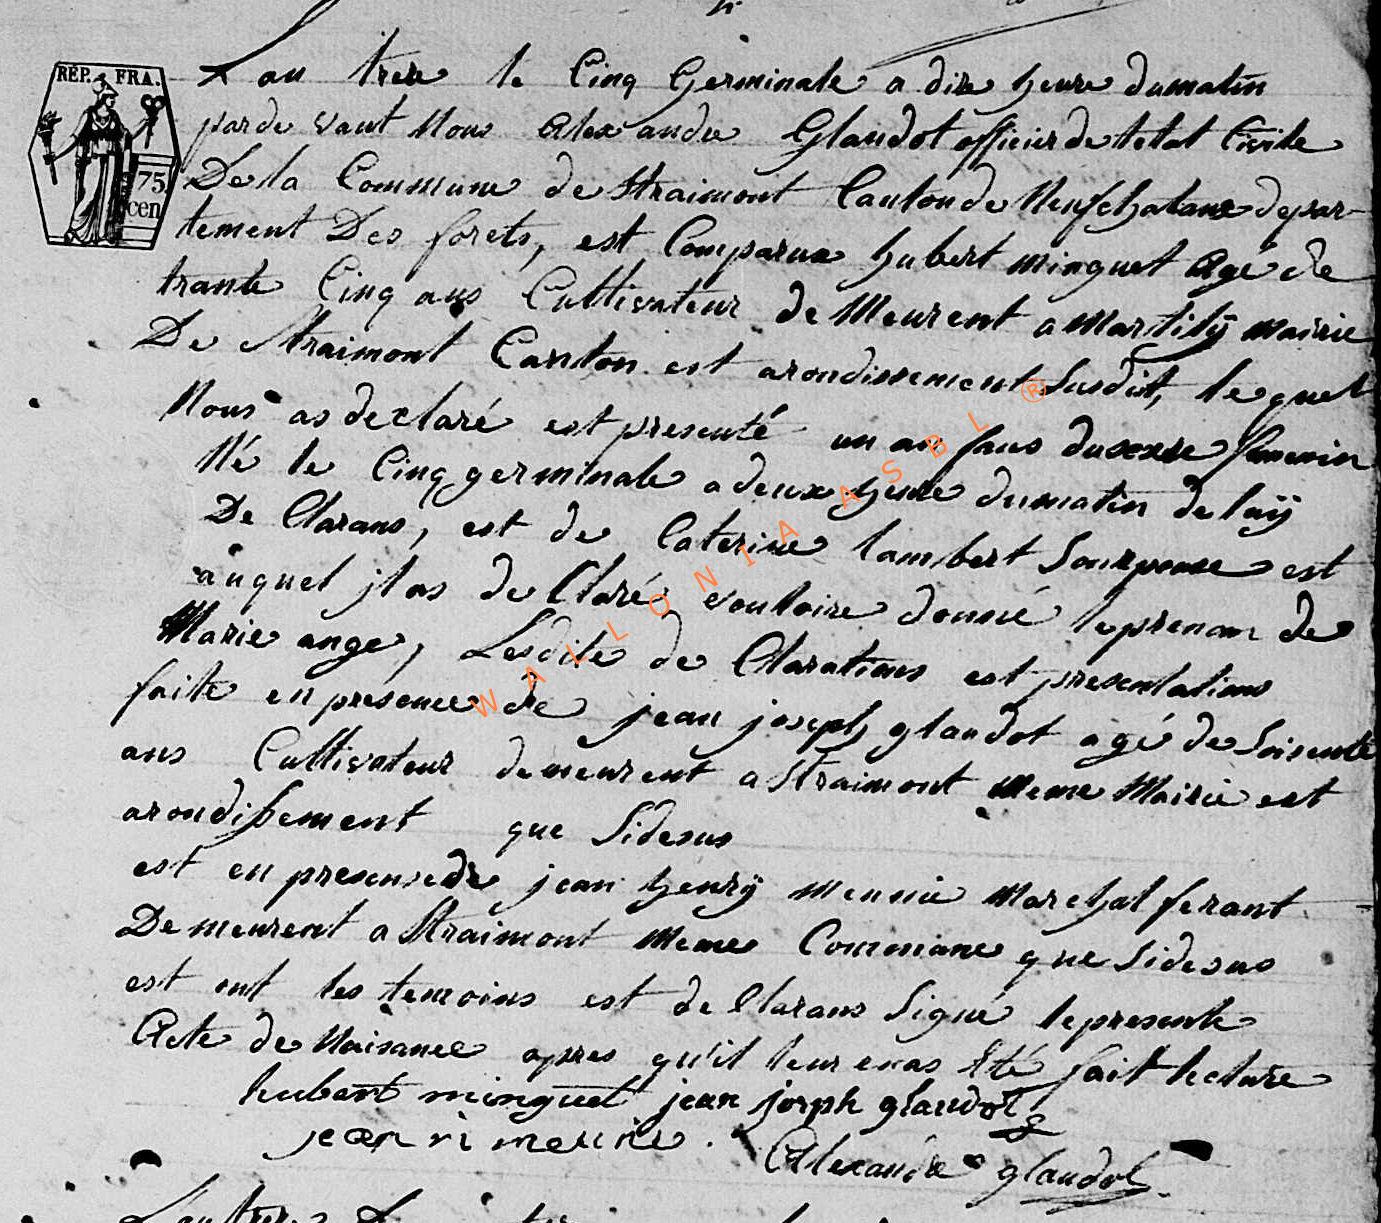 RÉP. FRA.
75
cen
L an treze le Cinq Germinale a dix heure dumatin
parde vant Nous Alexandre Glaudot officier de letat Civile
De la Commune de Straimont Canton de Neufchataux depar-
tement Des forets, est Comparue hubert minguet Agé de
trante Cinq ans Cultivateur de Meurent a Martilÿ mairie
De Straimont Canton est arondissement Susdit, le quel
Nous as declaré est presenté un an fans dusexse femenin
Né le Cinq germinale a deux heure dumatin de luÿ
De Clarans, est de Caterine lambert Sonepouse est
auquel jl as de Claré vouloire donné leprenom de
Marie ange, Lesdite de Clarations est presentations
faite en présence de jean joseph glaudot agé de Soisente
ans Cultivateur demeurent a Straimont meme Mairie est
arondissement que Sidesus
est en presensede jean henrÿ mennie Marchal ferant
Demeurent a Straimont meme Commune que Sidesus
est ont les temoins est de Clarans Signé lepresente
Acte de Naisance apres qu'il leur enas Eté fait lecture
hubert minguet jean joseph glaudot
jean ri mennie.
Alexandre glaudot
WALLONIA ASBL ®